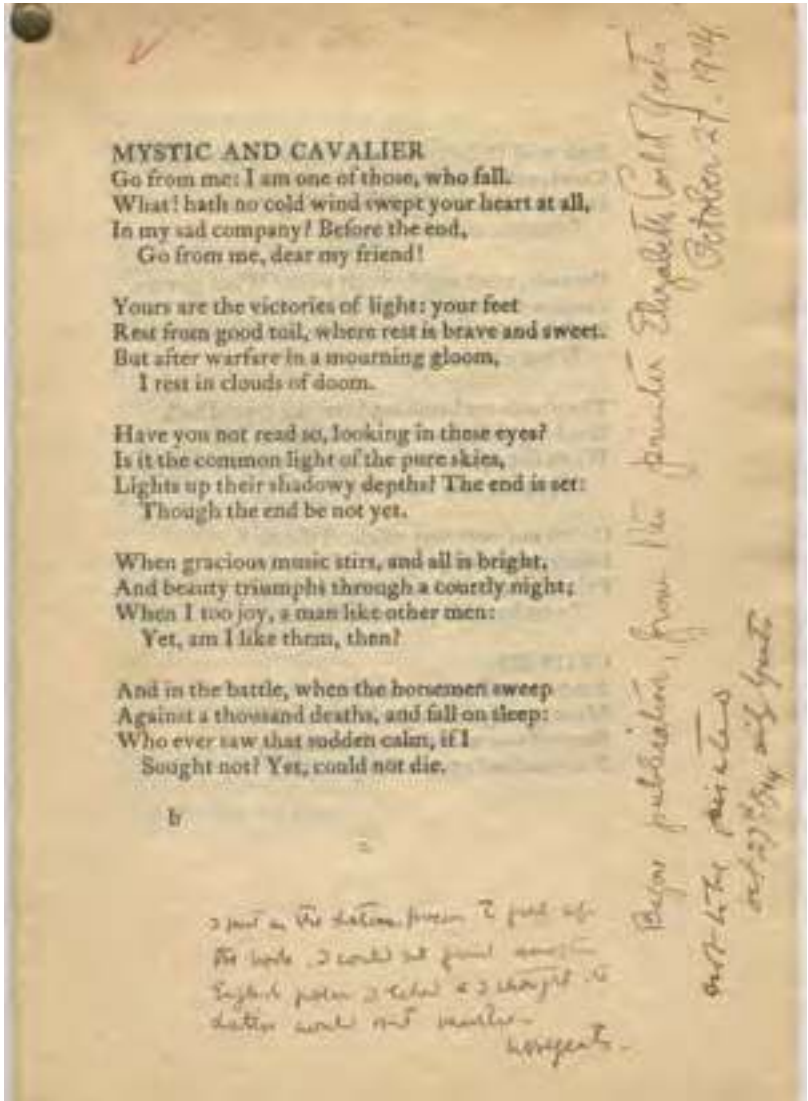 MYSTIC AND CAVALIER
Go from me: I am one of those, who fall.
What! hath no cold wind swept your heart at all,
In my sad company? Before the end,
Go from me, dear my friend!
Yours are the victories of light: your feet
Rest from good toil, where rest is brave and sweet.
But after warfare in a mourning gloom,
I rest in clouds of doom.
Have you not read so, looking in these eyes?
Is it the common light of the pure skies,
Lights up their shadowy depths? The end is set:
Though the end be not yet.
When gracious music stirs, and all is bright,
And beauty triumphs through a courtly night;
When I too joy, a man like other men:
Yet, am I like them, then?
And in the battle, when the horsemen sweep
Against a thousand deaths, and fall on sleep:
Who ever saw that sudden calm, if I
Sought not? Yet, could not die.
b
I put in the Latin poems to fill up
the book. I could not find
English poems I liked & I thought the
Latin would not matter
WBYeats.
Before publication, from the printer Elizabeth Corbet Yeats
October 27. 1904
Oct 27th 1904 Yeats